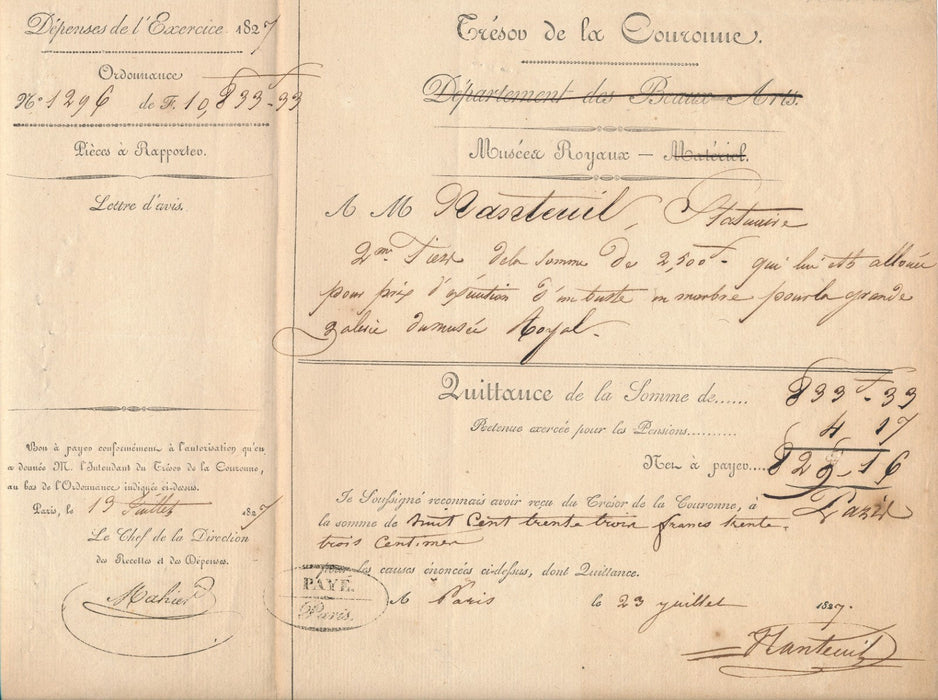 Dépenses de l'Exercice 1827
Ordonnance
N° 1296 de F. 10,833-33
Pièces à Rapporter.
Lettre d'avis.
Bon à payer conformément à l'autorisation qu'en
a donnée M. l'Intendant du Trésor de la Couronne,
au bas de l'Ordonnance indiquée ci-dessus.
Paris, le 13 Juillet 1827
Le Chef de la Direction
des Recettes et des Dépenses.
Mahier
Trésor de la Couronne.
Département des Beaux-Arts.
Musées Royaux — Matériel.
A M Nanteuil, Statuaire
2me Tiers de la somme de 2,500 F - qui lui est allouée
pour prix d'exécution d'un buste en marbre pour la grande
galerie du musée Royal.
Quittance de la Somme de...... 833 F - 33
Retenue exercée pour les Pensions.......... 4 17
Net à payer.... 829 16
Je Soussigné reconnais avoir reçu du Trésor de la Couronne, à Paris
la somme de huit Cent trente trois francs trente-
trois Centimes
pour les causes énoncées ci-dessus, dont Quittance.
PAYÉ.
Paris.
A Paris le 23 juillet 1827.
Nanteuil